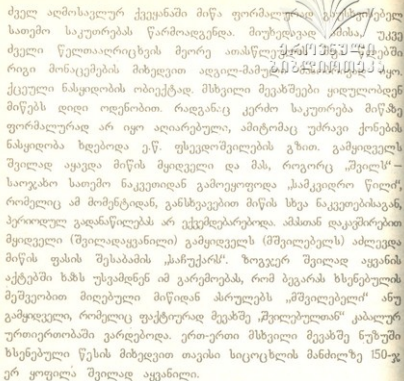 ძველ აღმოსავლურ ქვეყანაში მიწა ფორმალურად
სათემო საკუთრებას წარმოადგენდა. მიუხედავად ამისა, უკვე
ძველი წელთაღრიცხვის მეორე
რიგი მონაცემების მიხედვით ადგილ-მამული იყო
ქცეული ნასყიდობის ობიექტად. მსხვილი მევახშეები ყიდულობდნენ
მიწებს დიდი ოდენობით. რადგანაც კერძო საკუთრება მიწაზე
ფორმალურად არ იყო აღიარებული, ამიტომაც უძრავი ქონების
ნასყიდობა ხდებოდა ე.წ. ფსევდოშვილების გზით. გამყიდველს
შვილად აყავდა მიწის მყიდველი და მას, როგორც „შვილს“ –
საოჯახო სათემო ნაკვეთიდან გამოეყოფოდა „სამკვიდრო წილი“,
რომელიც ამ მომენტიდან, განსხვავებით მიწის სხვა ნაკვეთებისაგან,
პერიოდულ გადანაწილებას არ ექვემდებარებოდა. ამასთან დაკავშირებით
მყიდველი (შვილადაყვანილი) გამყიდველს (მშვილებელს) აძლევდა
მიწის ფასის შესაბამის „საჩუქარს“. ზოგჯერ შვილად აყვანის
აქტებში ხაზს უსვამდნენ იმ გარემოებას, რომ ბეგარას ხსენებულის
მეშვეობით მიღებული მიწიდან ასრულებს „მშვილებელი“ ანუ
გამყიდველი, რომელიც ფაქტიურად მევახშე „შვილებულთან“ კაბალურ
ურთიერთობაში ვარდებოდა. ერთ-ერთი მსხვილი მევახშე ნუზუში
ხსენებული წესის მიხედვით თავისი სიცოცხლის მანძილზე 150-ჯ
ერ ყოფილა შვილად აყვანილი.